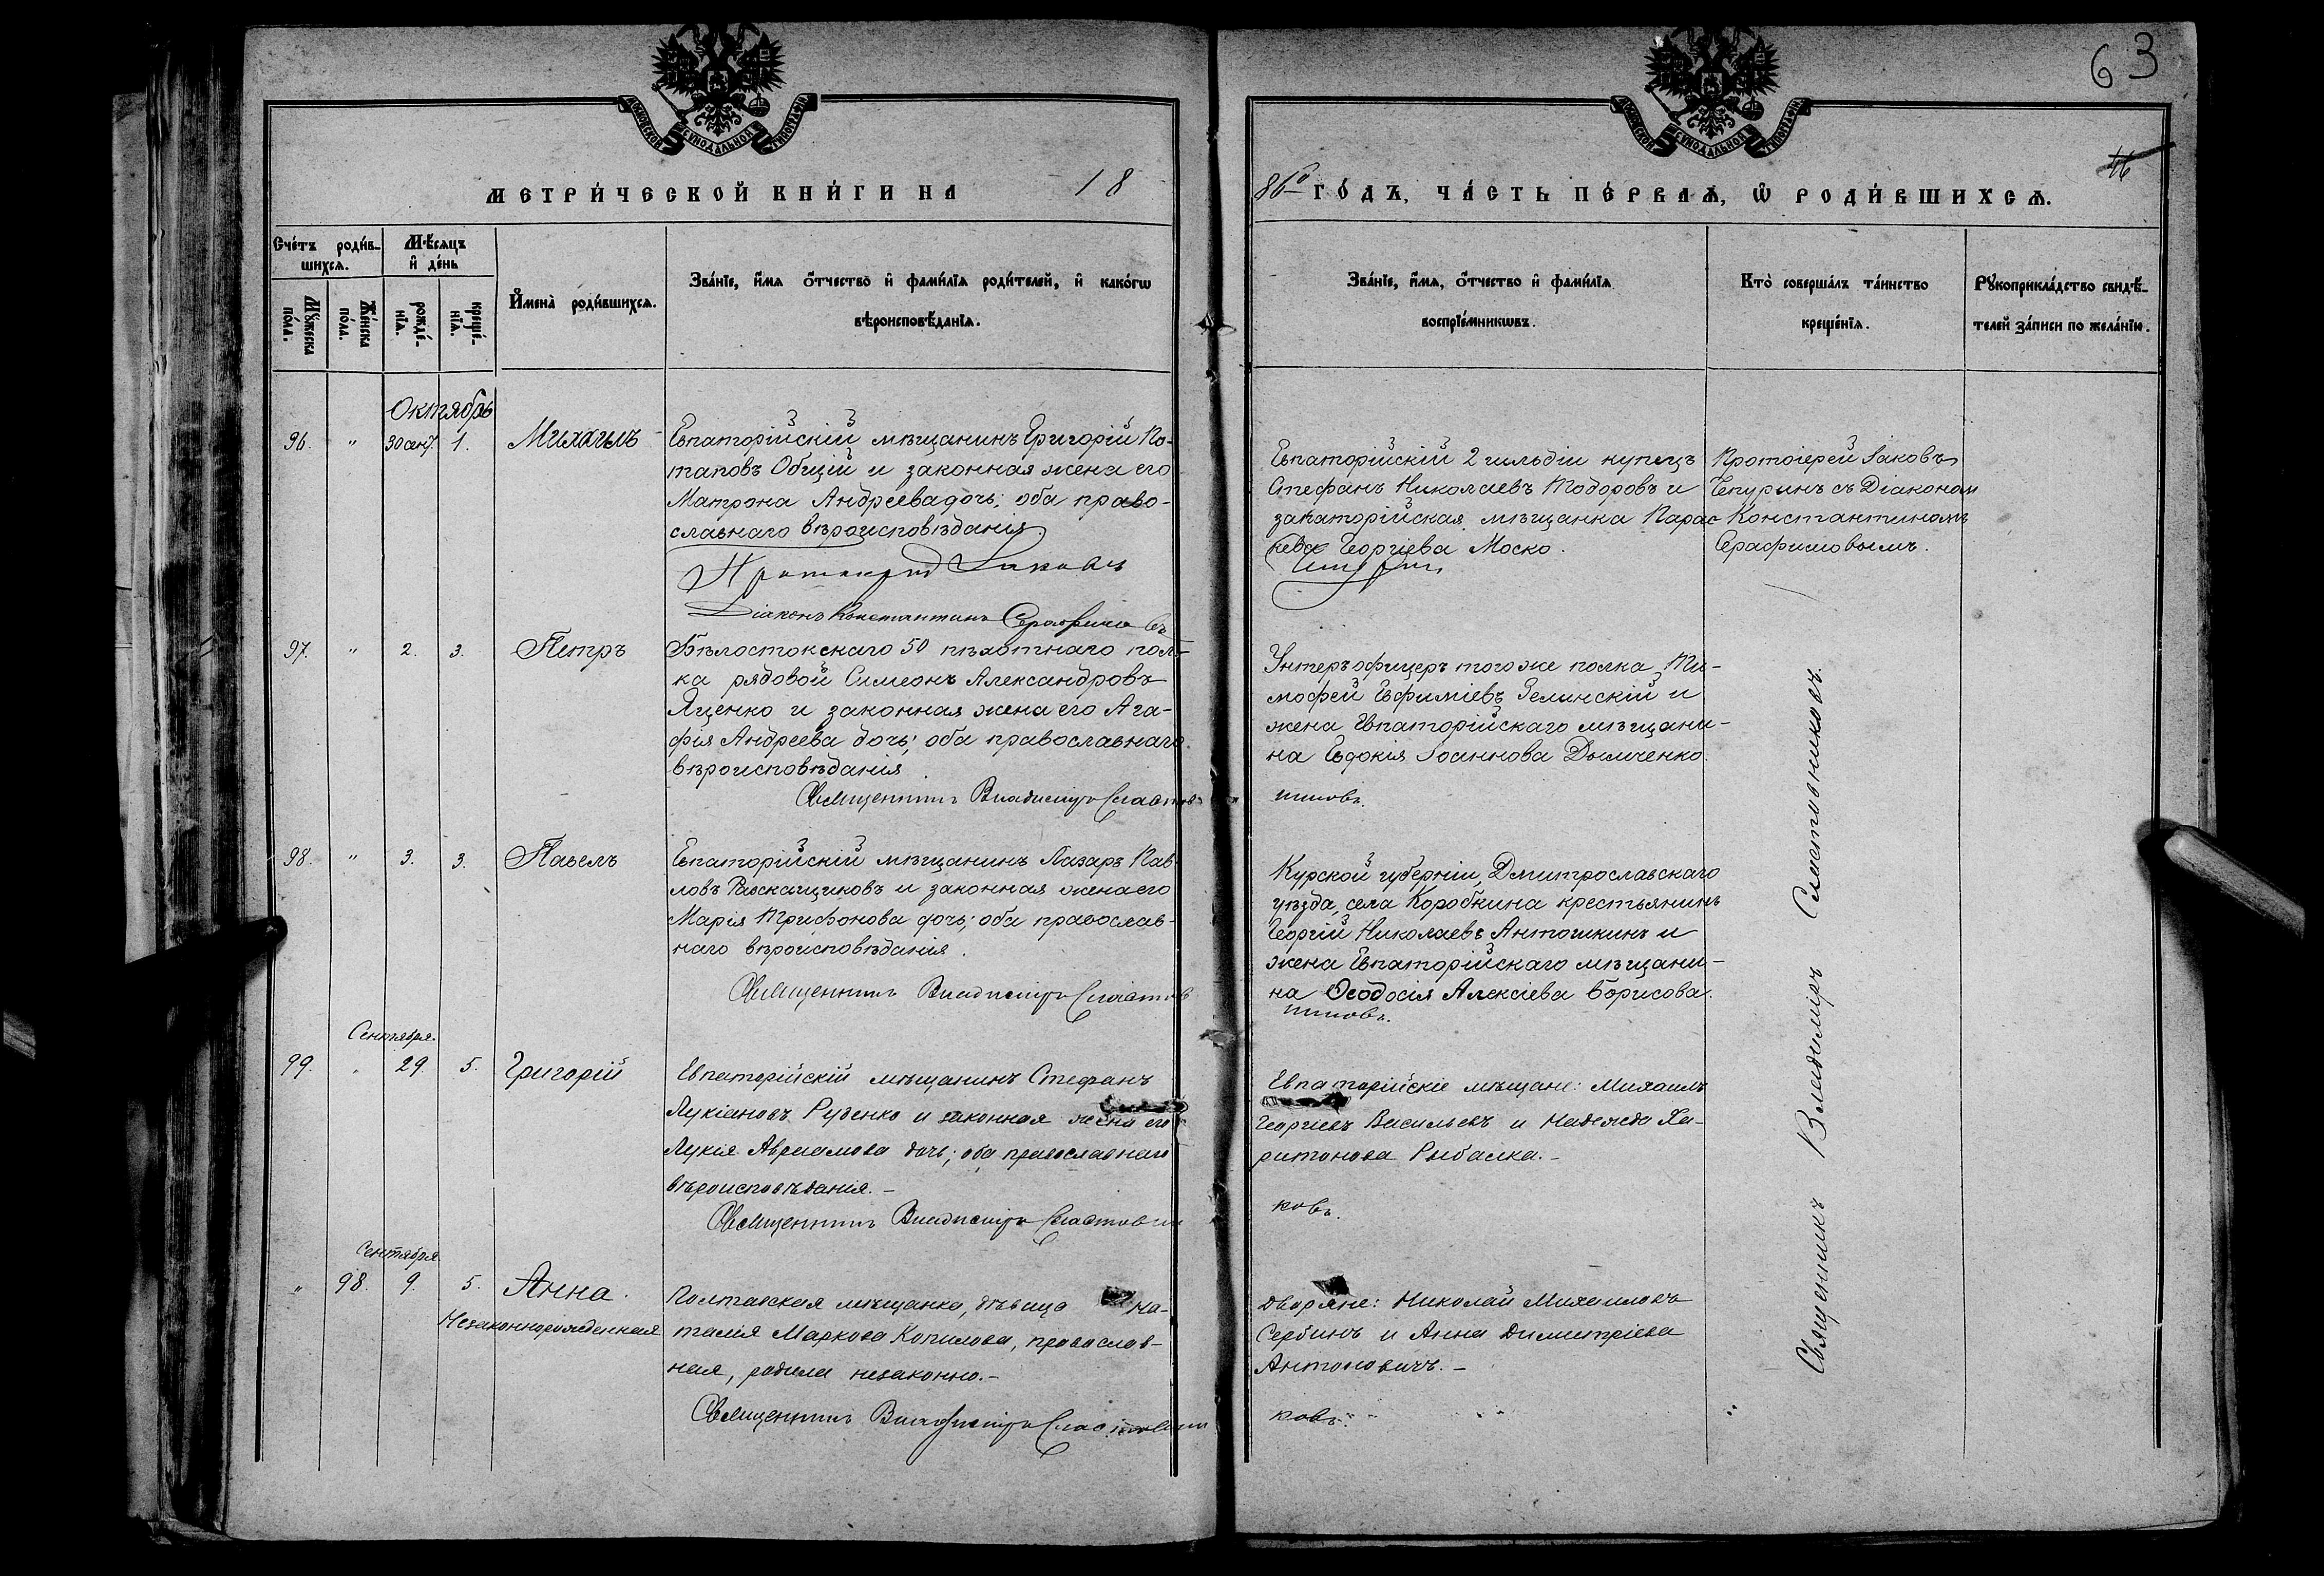 63
46
МОСКОВСКОЙ СѴНОДАЛЬНОЙ ТИПОГРАФІИ
МОСКОВСКОЙ СѴНОДАЛЬНОЙ ТИПОГРАФІИ
МЕТРИ́ЧЕСКОЙ КНИ́ГИ НА 18
86го ГО́ДЪ, ЧА́СТЬ ПЕ́РВАѦ, Ѡ҆ РОДИ́ВШИХСѦ.
Счётъ роди́в-
шихсѧ.
Мѣ́сѧцъ
и҆ де́нь
Мꙋ́жеска
по́ла.
Же́нска
по́ла.
рожде́-
нїѧ.
креще́-
нїѧ.
И҆мена̀ роди́вшихсѧ.
Зва́нїе, и҆́мѧ ѻ҆́тчество и҆ фами́лїѧ роди́телей, и҆ како́гѡ
вѣроисповѣ́данїѧ.
Зва́нїе, и҆́мѧ, ѻ҆́тчество и҆ фами́лїѧ
воспрїе́мникѡвъ.
Кто̀ соверша́лъ та́инство
креще́нїѧ.
Рꙋкоприкла́дство свидѣ́-
телей за́писи по жела́нїю.
Октябрь
96. " 30 сент. 1. Михаилъ
Евпаторійскій мѣщанинъ Григорій По-
таповъ Общій и законная жена его
Матрона Андреева дочь; оба право-
славнаго вѣроисповѣданія.
Протоіерей Іаковъ
Діаконъ Константинъ Серафимовъ
Евпаторійскій 2 гильдіи купецъ
Стефанъ Николаевъ Тодоровъ и
евпаторійская мѣщанка Парас-
кева Георгіева Моско.
Чепуринъ
Протоіерей Іаковъ
Чепуринъ съ Діакономъ
Константиномъ
Серафимовымъ.
97. " 2. 3. Петръ
Бѣлостокскаго 50 пѣхотнаго пол-
ка рядовой Симеонъ Александровъ
Яценко и законная жена его Ага-
фія Андреева дочь; оба православнаго
вѣроисповѣданія.
Священникъ Владиміръ Сластов
Унтеръ офицеръ того же полка Ти-
мофей Ефиміевъ Зелинскій и
жена Евпаторійскаго мѣщани-
на Евдокія Іоаннова Дымченко.
никовъ.
98. " 3. 3. Павелъ
Евпаторійскій мѣщанинъ Лазарь Пав-
ловъ Разскащиковъ и законная жена его
Марія Трифонова дочь; оба православ-
наго вѣроисповѣданія.
Священникъ Владиміръ Сластов
Курской губерніи, Дмитрославскаго
уѣзда, села Коробкина крестьянинъ
Георгій Николаевъ Антошкинъ и
жена Евпаторійскаго мѣщани-
на Ѳеодосія Алексіева Борисова.
никовъ.
Сентября.
99. " 29. 5. Григорій
Евпаторійскій мѣщанинъ Стефанъ
Лукіановъ Руденко и законная жена его
Лукія Авраамова дочь; оба православнаго
вѣроисповѣданія. –
Священникъ Владиміръ Сластовни
Евпаторійскіе мѣщане: Михаилъ
Георгіевъ Васильевъ и Надежда Ха-
ритонова Рыбалка. –
ковъ.
Сентября.
" 98. 9. 5. Анна.
Незаконнорожденная
Полтавская мѣщанка, дѣвица На-
талія Маркова Копилова, православ-
ная, родила незаконно. –
Священникъ Владиміръ Сластовни
Дворяне: Николай Михаиловъ
Сербинъ и Анна Димитріева
Антоновичъ. –
ковъ.
Священникъ Владиміръ Сластониковъ.